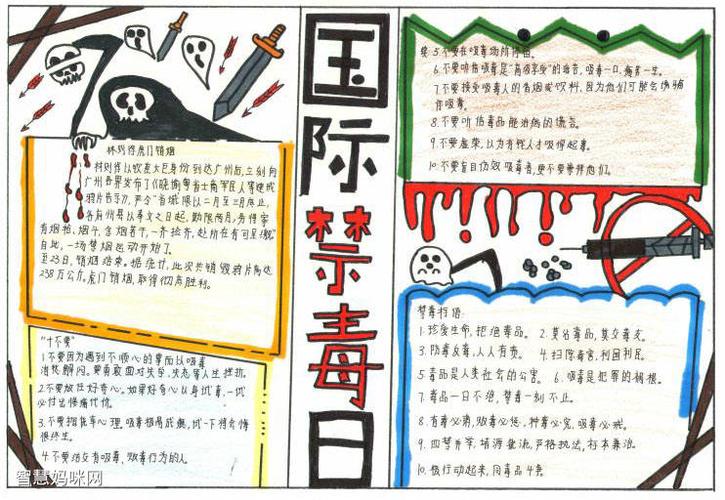 国际禁毒日
林则徐虎门销烟
林则徐以钦差大臣身份到达广州后，立刻向
广州各界发布了《晓谕粤省士商军民人等速戒
鸦片告示》，严令"省城限以二月至三月终止，
各自州县以奉文之日起，勒限两月，务得家
有烟枪、烟斗、含烟若干，一齐捡齐，赴所在有司呈缴"
自此，一场禁烟运动开始了。
至23日，销烟结束。据统计，此次共销毁鸦片高达
238万公斤，虎门销烟，取得彻底胜利。
"十不要"
1.不要因为遇到不顺心的事而以吸毒
消愁解闷。要勇敢面对失学、失恋等人生挫折。
2.不要放任好奇心。如果好奇心以身试毒，一试
必付出惨痛代价。
3.不要抱侥幸心理，吸毒极易成瘾，试一下将会悔
恨终生。
4.不要结交有吸毒、贩毒行为的人。
续：5.不要在吸毒场所停留。
6.不要听信吸毒是"高级享受"的谣言，吸毒一口，痛苦一生。
7.不要接受吸毒人的香烟或饮料，因为他们可能会诱骗
你吸毒。
8.不要听信毒品能治病的谎言。
9.不要虚荣，以为有钱人才吸得起毒。
10.不要盲目仿效吸毒者，更不要崇拜他们。
禁毒标语：
1.珍爱生命，拒绝毒品。 2.莫沾毒品，莫交毒友。
3.防毒反毒，人人有责。 4.扫除毒害，利国利民。
5.毒品是人类社会的公害。 6.吸毒是犯罪的祸根。
7.毒品一日不绝，禁毒一刻不止。
8.有毒必肃，贩毒必惩，种毒必究，吸毒必戒。
9.四禁并举，堵源截流，严格执法，标本兼治。
10.积行动起来，向毒品斗争。
智慧妈咪网